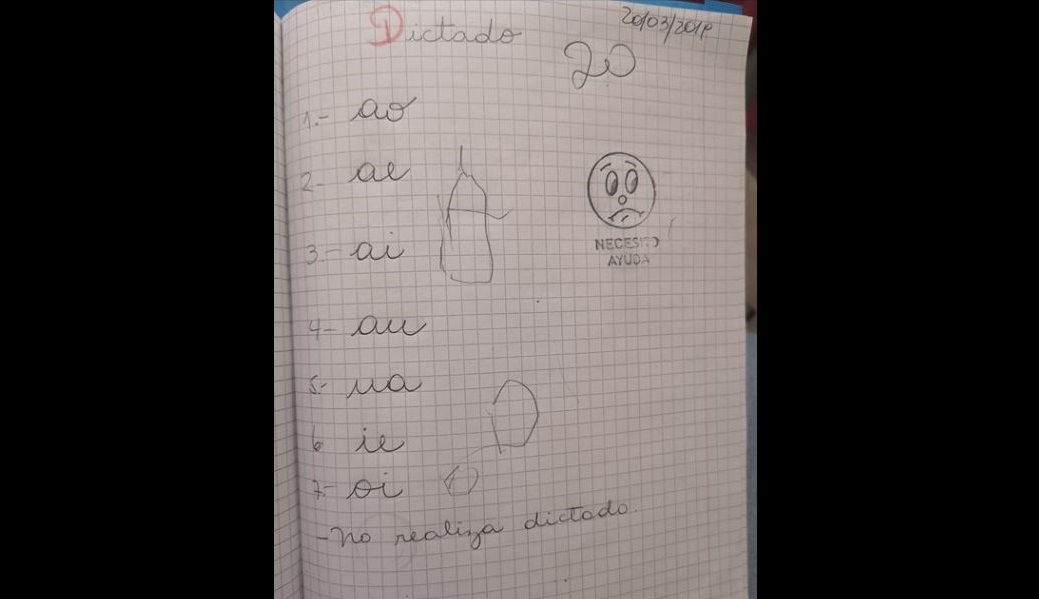 Dictado
20/03/2019
20
1.- ao
2- ae
3.- ai
NECESITO
AYUDA
4- au
5- ua
6 ie
7- oi
- No realiza dictado.